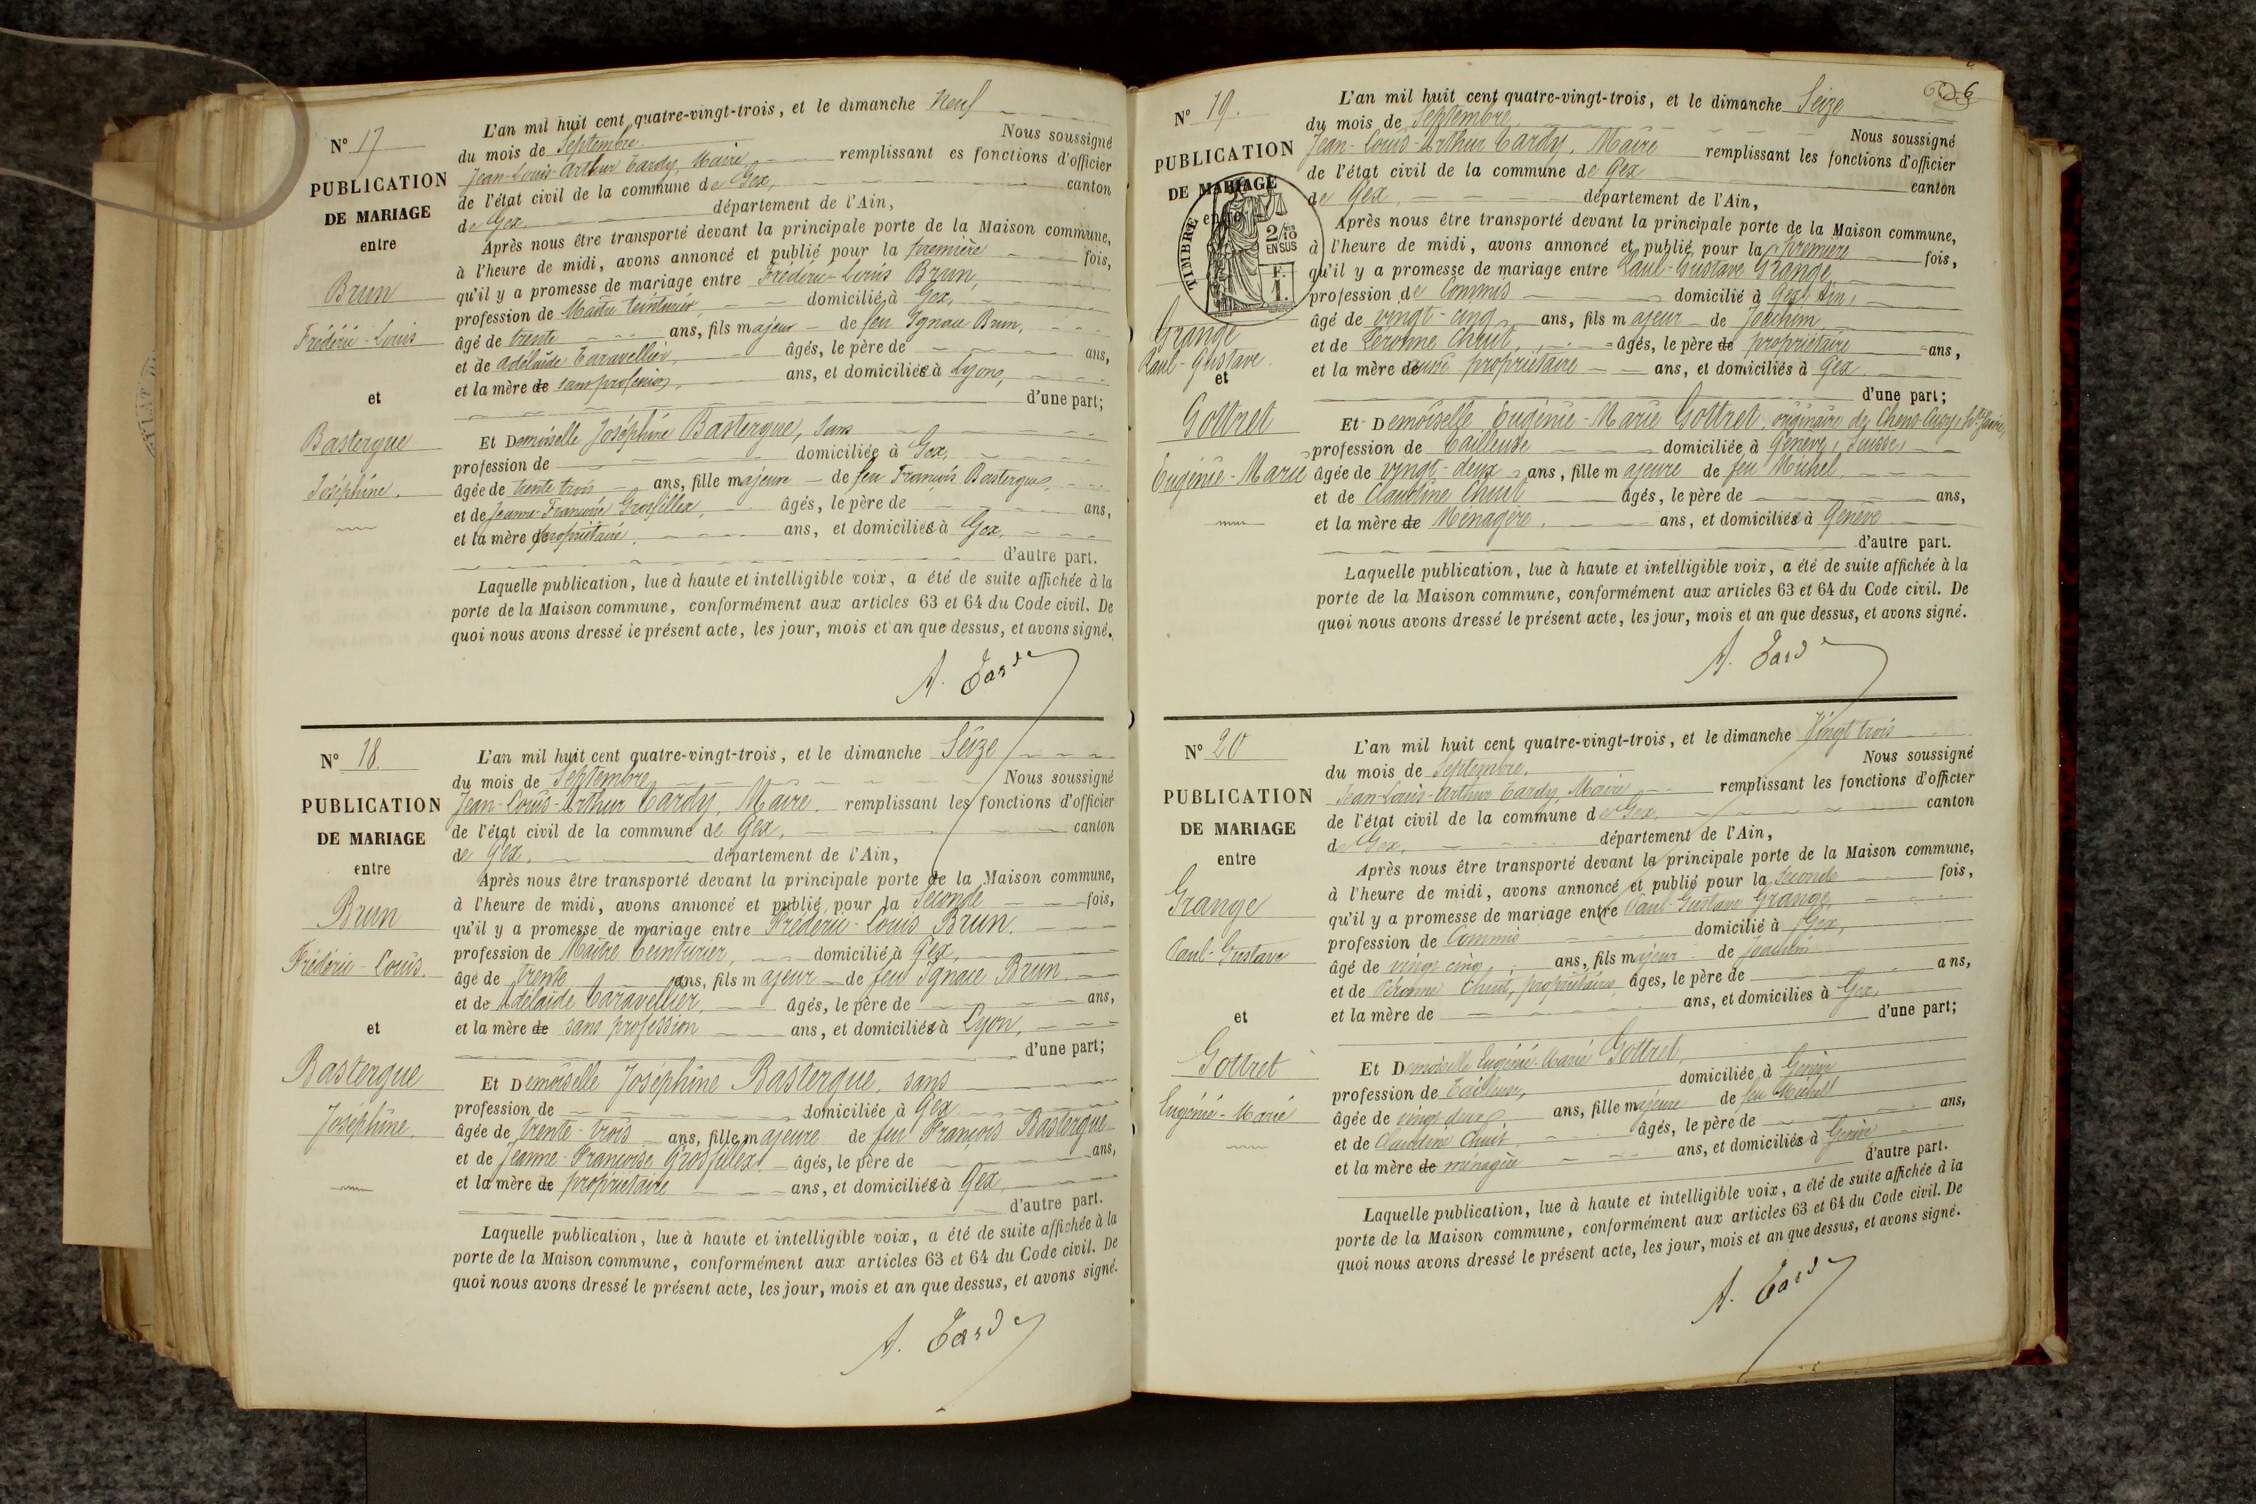 N° 17
PUBLICATION
DE MARIAGE
entre
Brun
Frédéric-Louis
et
Bastergue
Joséphine.
L'an mil huit cent quatre-vingt-trois, et le dimanche Neuf
du mois de Septembre. Nous soussigné
Jean-Louis-Arthur Tardy, Maire, remplissant es fonctions d'officier
de l'état civil de la commune de Gex, canton
de Gex. département de l'Ain,
Après nous être transporté devant la principale porte de la Maison commune,
à l'heure de midi, avons annoncé et publié pour la première fois,
qu'il y a promesse de mariage entre Frédéric-Louis Brun,
profession de Maître teinturier, domicilié à Gex,
âgé de trente ans, fils majeur de feu Ignace Brun,
et de Adélaïde Caravellier, âgés, le père de ans,
et la mère de sans profession, ans, et domiciliés à Lyon,
d'une part;
Et Demoiselle Joséphine Bastergue, sans
profession de domiciliée à Gex,
âgée de trente trois ans, fille majeure de feu François Bastergue,
et de Jeanne-Françoise Grosfillex, âgés, le père de ans,
et la mère de propriétaire. ans, et domiciliés à Gex.
d'autre part.
Laquelle publication, lue à haute et intelligible voix, a été de suite affichée à la
porte de la Maison commune, conformément aux articles 63 et 64 du Code civil. De
quoi nous avons dressé le présent acte, les jour, mois et an que dessus, et avons signé.
A. Tardy
N° 18
PUBLICATION
DE MARIAGE
entre
Brun
Frédéric-Louis.
et
Bastergue
Joséphine.
L'an mil huit cent quatre-vingt-trois, et le dimanche Seize
du mois de Septembre, Nous soussigné
Jean-Louis-Arthur Tardy, Maire. remplissant les fonctions d'officier
de l'état civil de la commune de Gex, canton
de Gex. département de l'Ain,
Après nous être transporté devant la principale porte de la Maison commune,
à l'heure de midi, avons annoncé et publié pour la Seconde fois,
qu'il y a promesse de mariage entre Frédéric-Louis Brun.
profession de Maître teinturier, domicilié à Gex,
âgé de trente ans, fils majeur de feu Ignace Brun
et de Adélaïde Caravellier. âgés, le père de ans,
et la mère de sans profession ans, et domiciliés à Lyon,
d'une part;
Et Demoiselle Joséphine Bastergue, sans
profession de domiciliée à Gex
âgée de trente-trois ans, fille majeure de feu François Bastergue
et de Jeanne-Françoise Grosfillex, âgés, le père de ans,
et la mère de propriétaire ans, et domiciliés à Gex
d'autre part.
Laquelle publication, lue à haute et intelligible voix, a été de suite affichée à la
porte de la Maison commune, conformément aux articles 63 et 64 du Code civil. De
quoi nous avons dressé le présent acte, les jour, mois et an que dessus, et avons signé.
A. Tardy
6
N° 19.
PUBLICATION
DE MARIAGE
entre
TIMBRE
2/10
EN SUS
F.
1.
Grange
Paul-Gustave.
et
Gottret
Eugénie-Marie
L'an mil huit cent quatre-vingt-trois, et le dimanche Seize
du mois de Septembre. Nous soussigné
Jean-Louis-Arthur Tardy, Maire remplissant les fonctions d'officier
de l'état civil de la commune de Gex canton
de Gex, département de l'Ain,
Après nous être transporté devant la principale porte de la Maison commune,
à l'heure de midi, avons annoncé et publié pour la première fois,
qu'il y a promesse de mariage entre Paul-Gustave Grange,
profession de Commis domicilié à Gex (Ain)
âgé de vingt-cinq ans, fils majeur de Joachim
et de Péronne Chuit, âgés, le père de propriétaire ans,
et la mère de propriétaire ans, et domiciliés à Gex.
d'une part;
Et Demoiselle Eugénie-Marie Gottret, originaire de Chens-Cusy, Hte Savoie,
profession de Tailleuse domiciliée à Genève, (Suisse)
âgée de vingt-deux ans, fille majeure de feu Michel
et de Claudine Chuit âgés, le père de ans,
et la mère de Ménagère. ans, et domiciliés à Genève
d'autre part.
Laquelle publication, lue à haute et intelligible voix, a été de suite affichée à la
porte de la Maison commune, conformément aux articles 63 et 64 du Code civil. De
quoi nous avons dressé le présent acte, les jour, mois et an que dessus, et avons signé.
A. Tardy
N° 20
PUBLICATION
DE MARIAGE
entre
Grange
Paul-Gustave
et
Gottret
Eugénie-Marie
L'an mil huit cent quatre-vingt-trois, et le dimanche Vingt trois
du mois de Septembre. Nous soussigné
Jean-Louis-Arthur Tardy, Maire remplissant les fonctions d'officier
de l'état civil de la commune de Gex. canton
de Gex, département de l'Ain,
Après nous être transporté devant la principale porte de la Maison commune,
à l'heure de midi, avons annoncé et publié pour la seconde fois,
qu'il y a promesse de mariage entre Paul-Gustave Grange,
profession de Commis domicilié à Gex,
âgé de vingt cinq, ans, fils majeur de Joachim
et de Péronne Chuit, propriétaires, âgés, le père de ans,
et la mère de ans, et domiciliés à Gex,
d'une part;
Et Demoiselle Eugénie-Marie Gottret,
profession de Tailleuse, domiciliée à Genève
âgée de vingt deux ans, fille majeure de feu Michel
et de Claudine Chuit, âgés, le père de ans,
et la mère de ménagère ans, et domiciliés à Genève
d'autre part.
Laquelle publication, lue à haute et intelligible voix, a été de suite affichée à la
porte de la Maison commune, conformément aux articles 63 et 64 du Code civil. De
quoi nous avons dressé le présent acte, les jour, mois et an que dessus, et avons signé.
A. Tardy